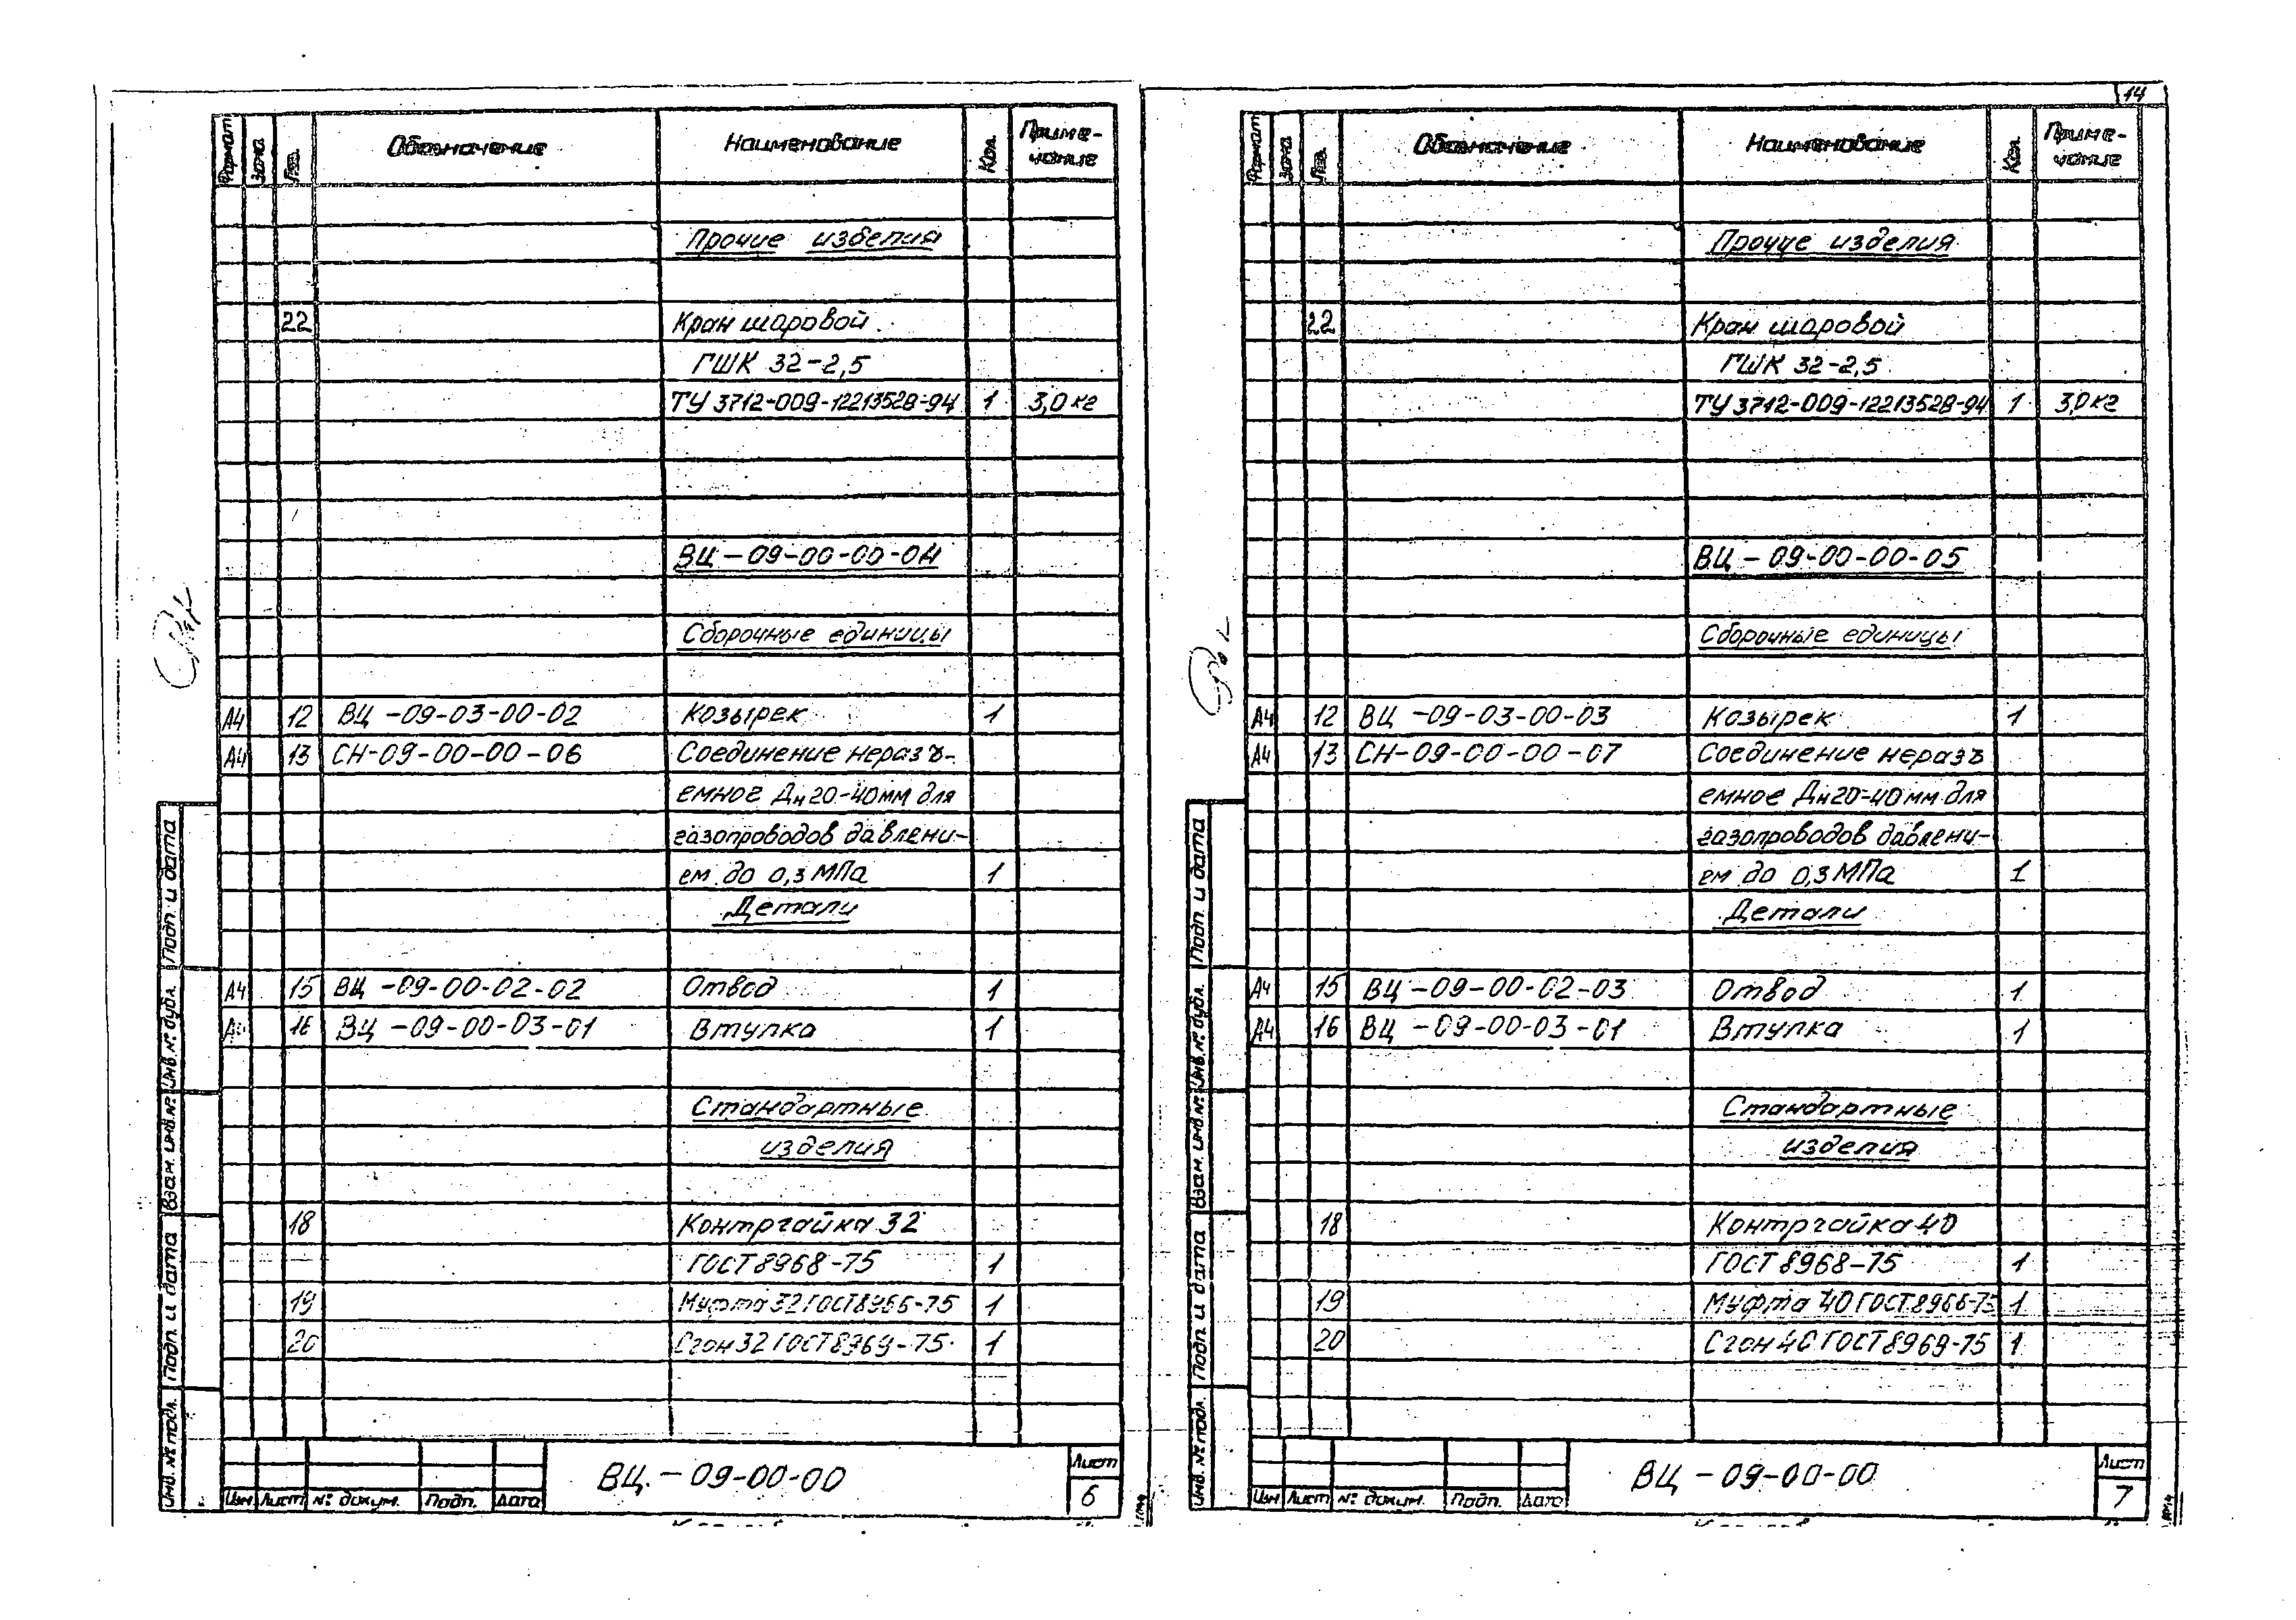 Формат Зона Поз. Обозначение Наименование Кол. Приме-
чание
Прочие изделия
22 Кран шаровой
ГШК 32-2,5
ТУ 3712-009-12213528-94 1 3,0 кг
ВЦ-09-00-00-04
Сборочные единицы
А4 12 ВЦ-09-03-00-02 Козырек 1
А4 13 СН-09-00-00-06 Соединение неразъ-
емное Дн20-40мм для
газопроводов давлени-
ем до 0,3 МПа 1
Детали
А4 15 ВЦ-09-00-02-02 Отвод 1
А4 16 ВЦ-09-00-03-01 Втулка 1
Стандартные
изделия
18 Контргайка 32
ГОСТ 8968-75 1
19 Муфта 32 ГОСТ 8966-75 1
20 Сгон 32 ГОСТ 8969-75 1
Инв. № подл. Подп. и дата Взам. инв. № Инв. № дубл. Подп. и дата
Изм Лист № докум. Подп. Дата
ВЦ.-09-00-00
Лист
6
14
Формат Зона Поз. Обозначение Наименование Кол. Приме-
чание
Прочие изделия
22 Кран шаровой
ГШК 32-2,5
ТУ 3712-009-12213528-94 1 3,0 кг
ВЦ-09-00-00-05
Сборочные единицы
А4 12 ВЦ-09-03-00-03 Козырек 1
А4 13 СН-09-00-00-07 Соединение неразъ
емное Дн20-40 мм для
газопроводов давлени-
ем до 0,3 МПа 1
Детали
А4 15 ВЦ-09-00-02-03 Отвод 1
А4 16 ВЦ-09-00-03-01 Втулка 1
Стандартные
изделия
18 Контргайка 40
ГОСТ 8968-75 1
19 Муфта 40 ГОСТ 8966-75 1
20 Сгон 40 ГОСТ 8969-75 1
Инв. № подл. Подп. и дата Взам. инв. № Инв. № дубл. Подп. и дата
Изм Лист № докум. Подп. Дата
ВЦ-09-00-00
Лист
7